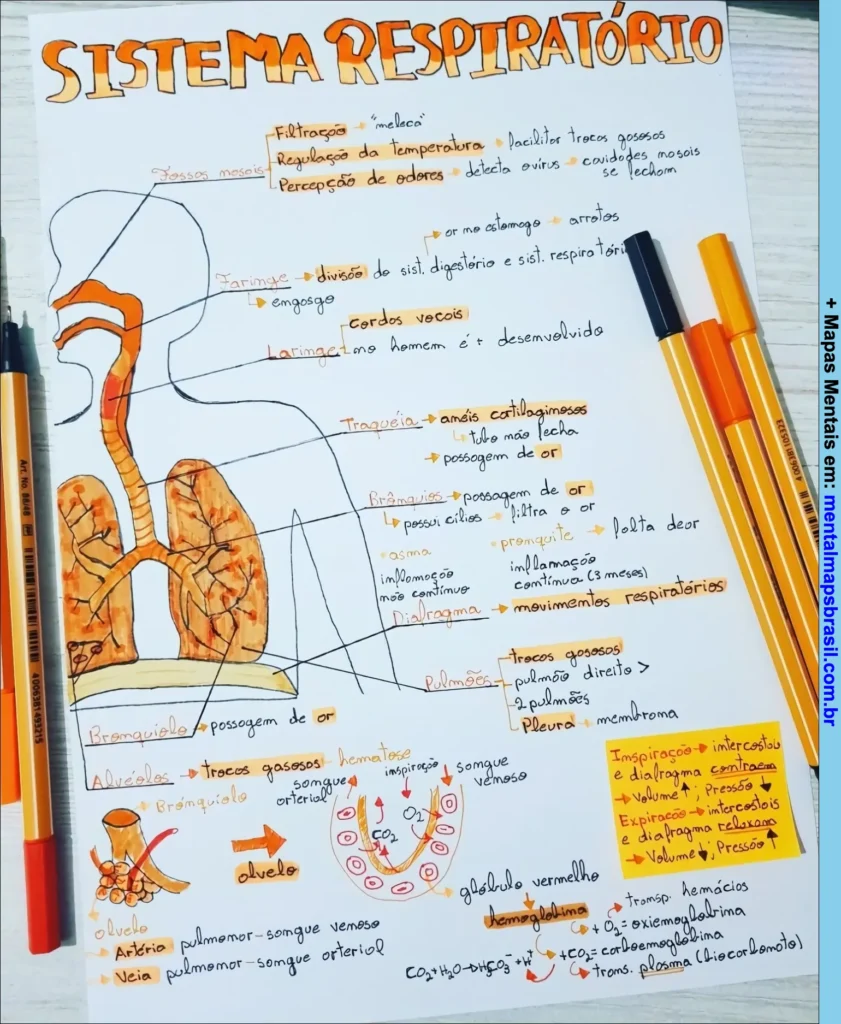 SISTEMA RESPIRATÓRIO
Fossas nasais
Filtração → "meleca"
Regulação da temperatura → facilitar trocas gasosas
Percepção de odores → detecta o vírus → cavidades nasais
se fecham
ar no estomago → arrotos
Faringe → divisão do sist. digestório e sist. respiratóri
↳ engasgo
cordas vocais
Laringe
no homem é + desenvolvido
Traquéia → anéis cartilaginosos
↳ tubo não fecha
→ passagem de ar
Brônquios → passagem de ar
↳ possui cílios → filtra o ar
• asma
inflamação
não contínua
• pronquite → falta de ar
inflamação
contínua (3 meses)
Diafragma → movimentos respiratórios
Pulmões
trocas gasosas
pulmão direito >
2 pulmões
Pleura → membrana
Bronquíolo → passagem de ar
Alvéolos → trocas gasosas → hematose
Bronquíolo
alvelo
sangue
arterial
inspiração
sangue
venoso
CO2
O2
alvelo
Artéria pulmonar - sangue venoso
Veia pulmonar - sangue arterial
glóbulo vermelho
hemoglobina
transp. hemácias
+ O2 = oxiemoglobina
+ CO2 = carboemoglobina
trans. plasma (biocarbonato)
CO2 + H2O → HCO3⁻ + H⁺
Inspiração → intercostau
e diafragma contraem
→ Volume ↑; Pressão ↓
Expiração → intercostais
e diafragma relaxam
→ Volume ↓; Pressão ↑
Art. No. 88/40
4006381493215
4006381105323
+ Mapas Mentais em: mentalmapsbrasil.com.br